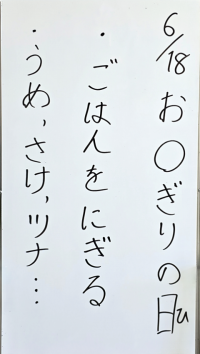 6/18 お〇ぎりの日ひ
・ごはんをにぎる
・うめ，さけ，ツナ…